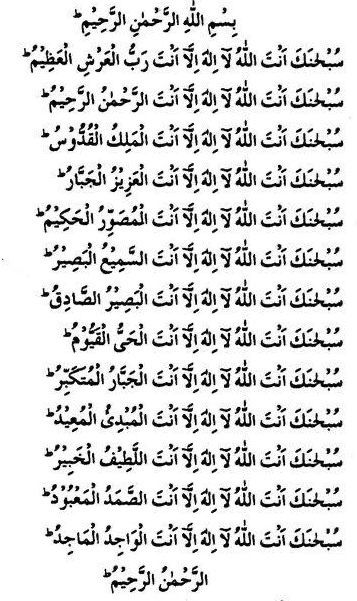 بِسْمِ اللّٰهِ الرَّحْمٰنِ الرَّحِيْمِ ؕ
سُبْحٰنَكَ اَنْتَ اللّٰهُ لَآ اِلٰهَ اِلَّآ اَنْتَ رَبُّ الْعَرْشِ الْعَظِيْمُ ؕ
سُبْحٰنَكَ اَنْتَ اللّٰهُ لَآ اِلٰهَ اِلَّآ اَنْتَ الرَّحْمٰنُ الرَّحِيْمُ ؕ
سُبْحٰنَكَ اَنْتَ اللّٰهُ لَآ اِلٰهَ اِلَّآ اَنْتَ الْمَلِكُ الْقُدُّوْسُ ؕ
سُبْحٰنَكَ اَنْتَ اللّٰهُ لَآ اِلٰهَ اِلَّآ اَنْتَ الْعَزِيْزُ الْجَبَّارُ ؕ
سُبْحٰنَكَ اَنْتَ اللّٰهُ لَآ اِلٰهَ اِلَّآ اَنْتَ الْمُصَوِّرُ الْحَكِيْمُ ؕ
سُبْحٰنَكَ اَنْتَ اللّٰهُ لَآ اِلٰهَ اِلَّآ اَنْتَ السَّمِيْعُ الْبَصِيْرُ ؕ
سُبْحٰنَكَ اَنْتَ اللّٰهُ لَآ اِلٰهَ اِلَّآ اَنْتَ الْبَصِيْرُ الصَّادِقُ ؕ
سُبْحٰنَكَ اَنْتَ اللّٰهُ لَآ اِلٰهَ اِلَّآ اَنْتَ الْحَىُّ الْقَيُّوْمُ ؕ
سُبْحٰنَكَ اَنْتَ اللّٰهُ لَآ اِلٰهَ اِلَّآ اَنْتَ الْجَبَّارُ الْمُتَكَبِّرُ ؕ
سُبْحٰنَكَ اَنْتَ اللّٰهُ لَآ اِلٰهَ اِلَّآ اَنْتَ الْمُبْدِئُ الْمُعِيْدُ ؕ
سُبْحٰنَكَ اَنْتَ اللّٰهُ لَآ اِلٰهَ اِلَّآ اَنْتَ اللَّطِيْفُ الْخَبِيْرُ ؕ
سُبْحٰنَكَ اَنْتَ اللّٰهُ لَآ اِلٰهَ اِلَّآ اَنْتَ الصَّمَدُ الْمَعْبُوْدُ ؕ
سُبْحٰنَكَ اَنْتَ اللّٰهُ لَآ اِلٰهَ اِلَّآ اَنْتَ الْوَاجِدُ الْمَاجِدُ ؕ
الرَّحْمٰنُ الرَّحِيْمُ ؕ